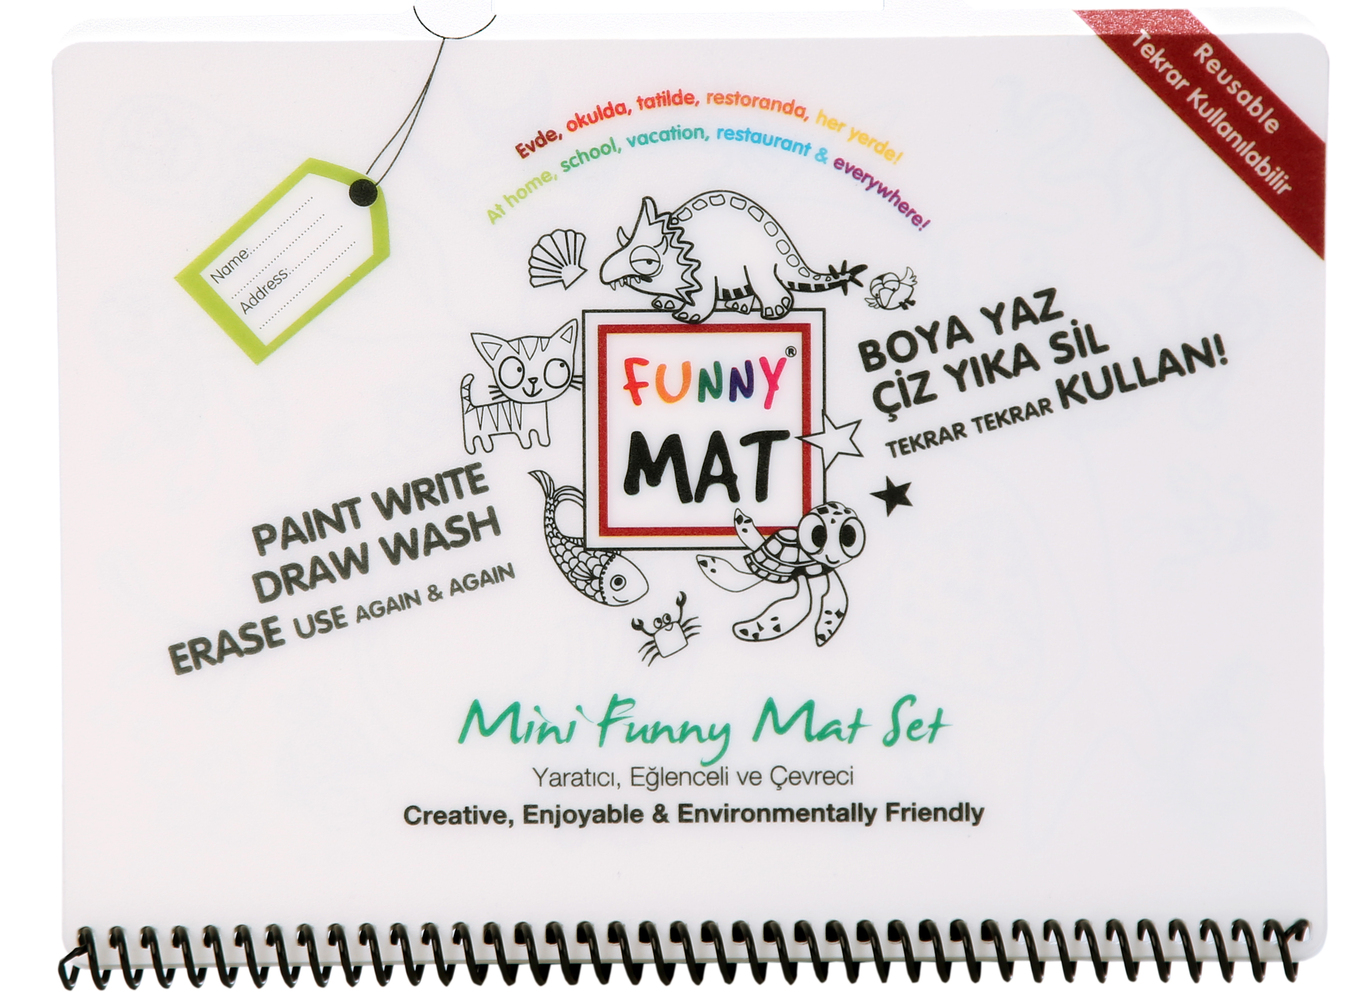 Reusable
Tekrar Kullanılabilir
Evde, okulda, tatilde, restoranda, her yerde!
At home, school, vacation, restaurant & everywhere!
Name:
Address:
FUNNY®
MAT
BOYA YAZ
ÇİZ YIKA SİL
TEKRAR TEKRAR KULLAN!
PAINT WRITE
DRAW WASH
ERASE USE AGAIN & AGAIN
Mini Funny Mat Set
Yaratıcı, Eğlenceli ve Çevreci
Creative, Enjoyable & Environmentally Friendly